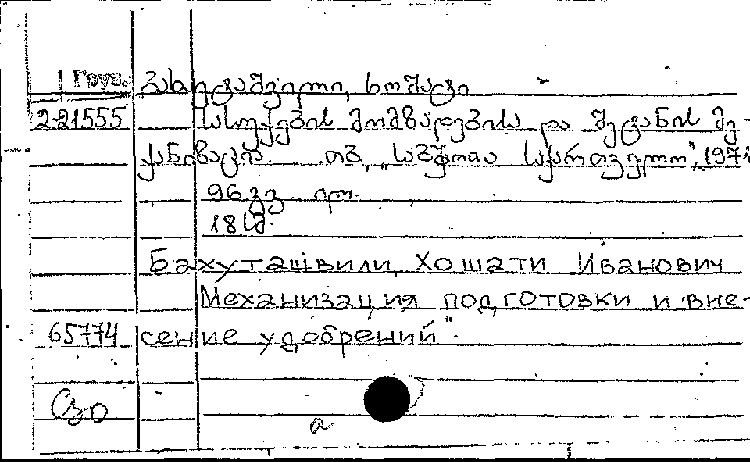 1 Груз. ბახუტაშვილი, ხოშატი
2-21555 სასუქების მომზადებისა და შეტანის მე-
ქანიზაცია თბ. „საბჭოთა საქართველო", 1971
96 გვ ილ.
18 სმ.
Бахуташвили, Хошати Иванович
Механизация подготовки и вне-
65774 сение удобрений".
a